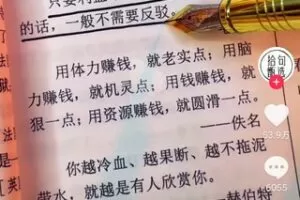 的话，一般不需要反驳。
用体力赚钱，就老实点；用脑
力赚钱，就机灵点；用钱赚钱，就
狠一点；用资源赚钱，就圆滑一点。
——佚名
你越冷血、越果断、越不拖泥
带水，就越是有人欣赏你。
——赫伯特
53.9万
6055